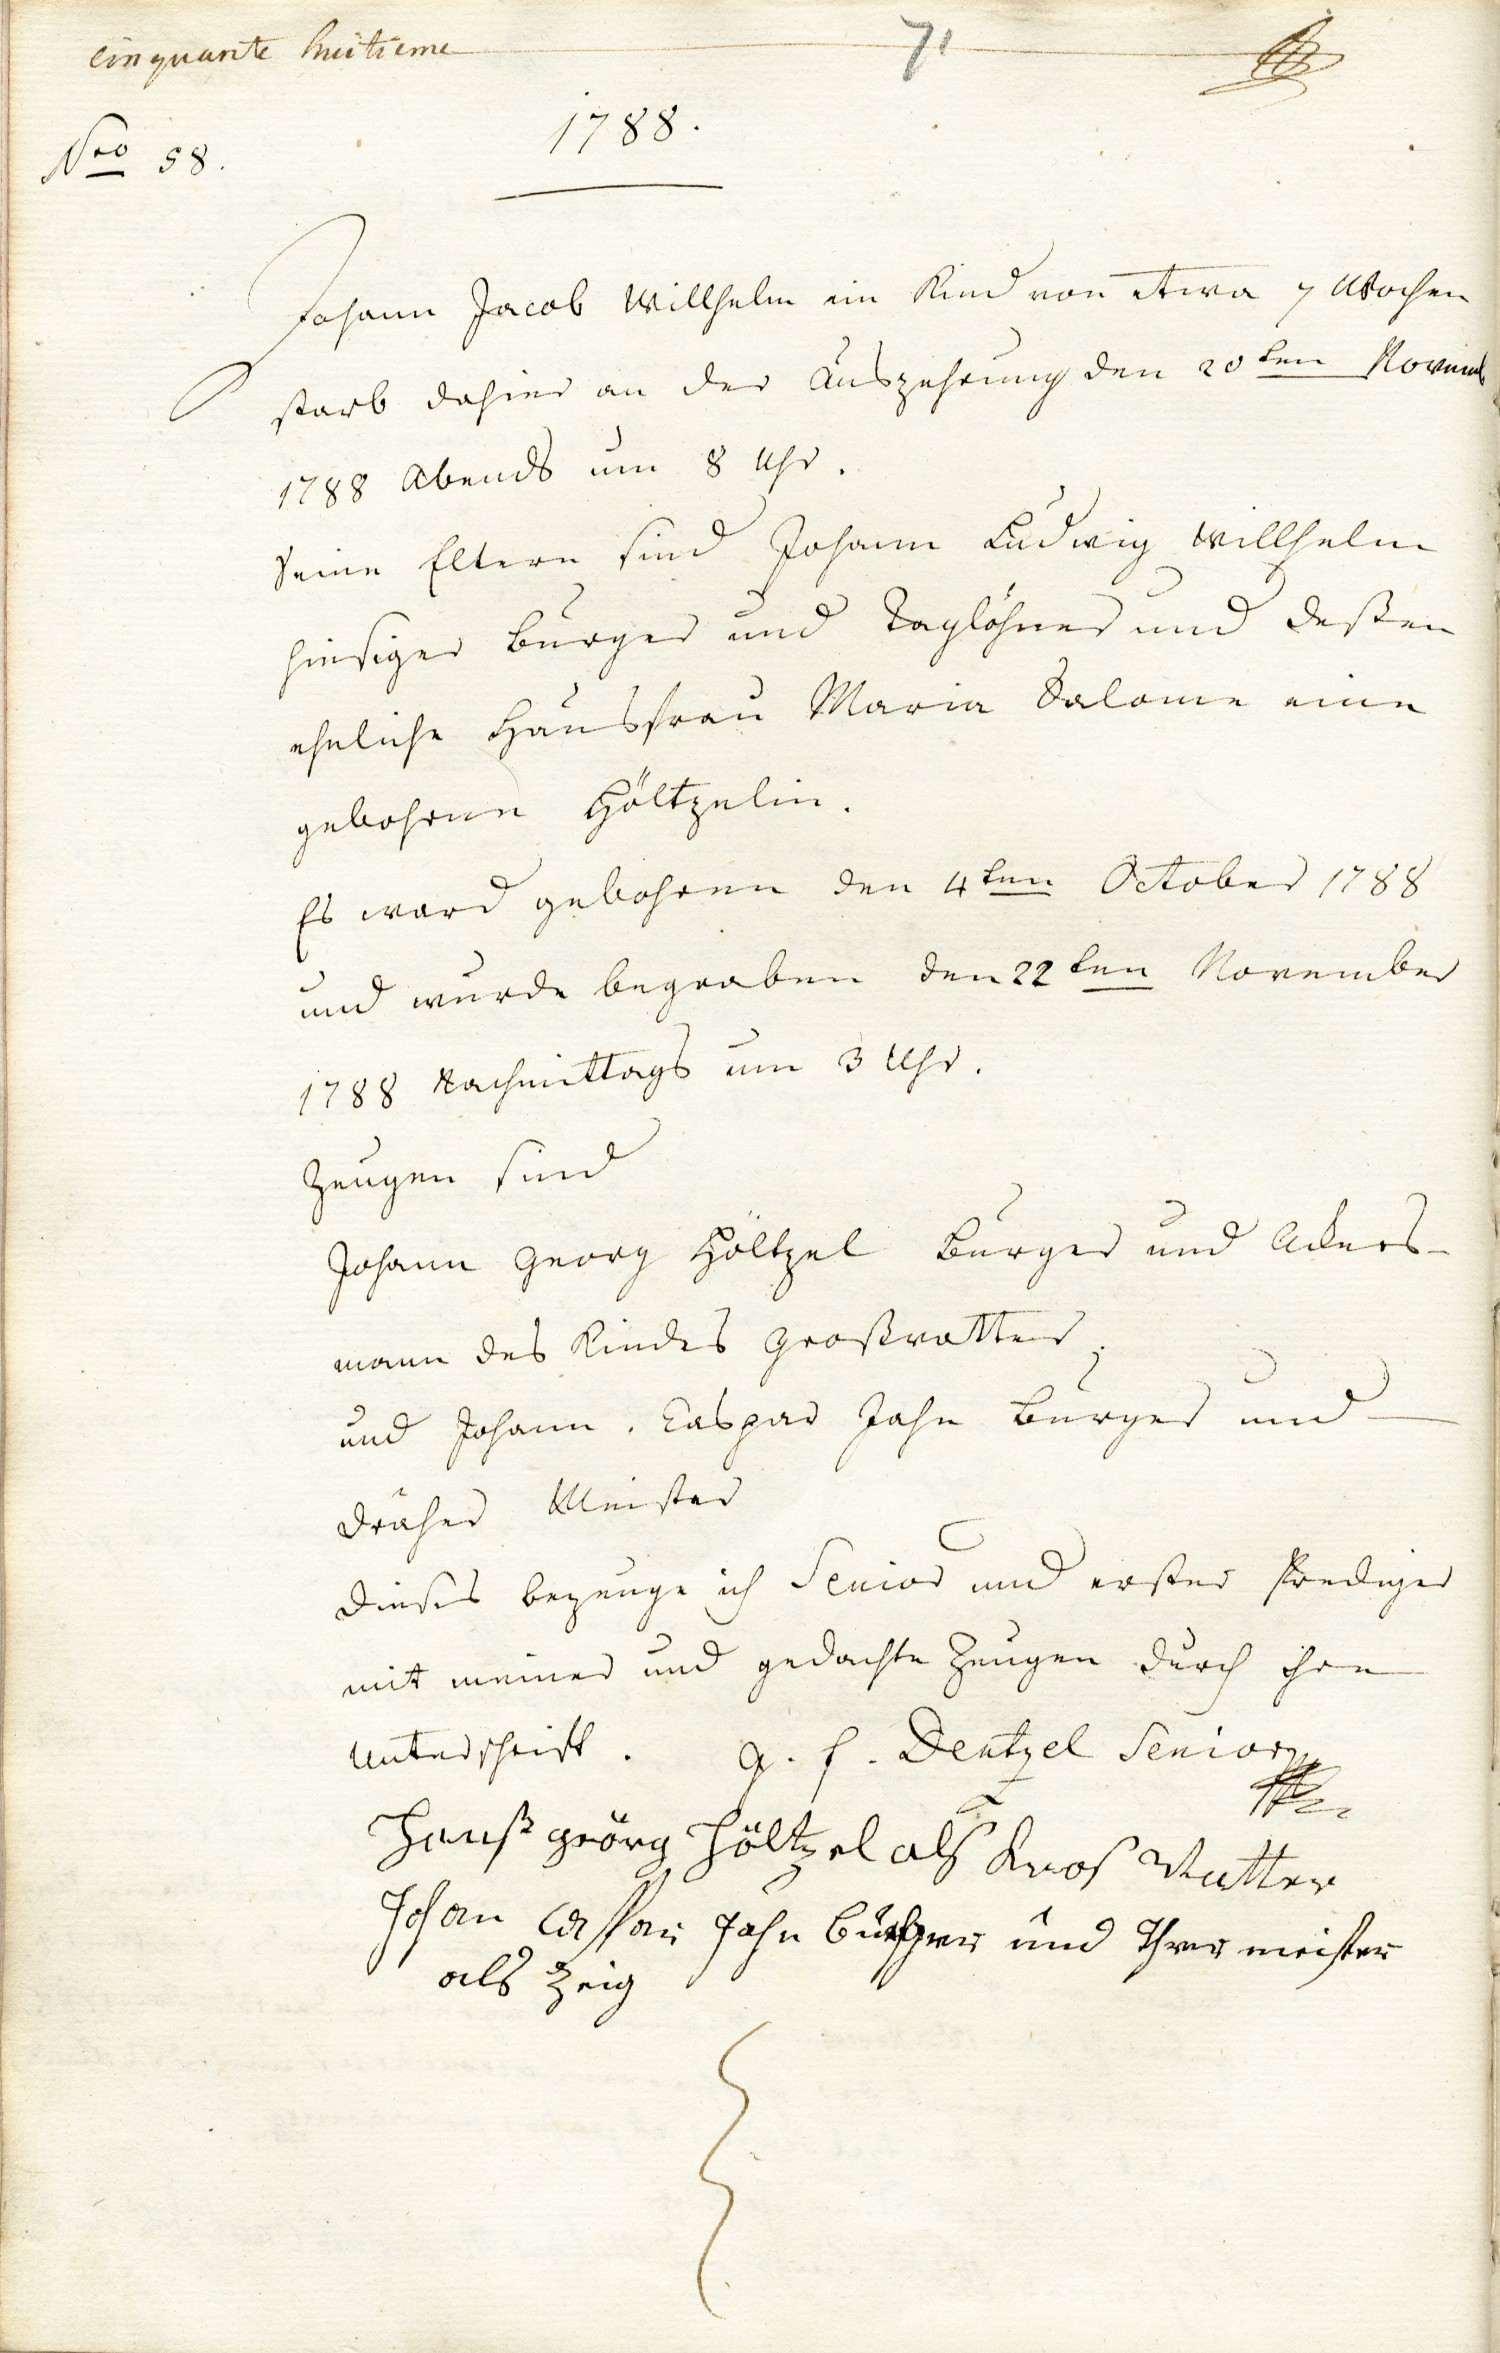 cinquante huitieme
71
1788.
Nro 58.
Johann Jacob Willhelm ein Kind von etwa 7 Wochen
starb dahier an der Auszehrung den 20ten Novemb
1788 Abends um 8 Uhr.
Seine Eltern sind Johann Ludwig Willhelm
hiesiger Burger und Taglöhner und deßen
eheliche Hausfrau Maria Salome eine
gebohrne Höltzelin.
Es ward gebohren den 4ten October 1788
und wurde begraben den 22ten November
1788 Nachmittags um 3 Uhr.
Zeugen sind
Johann Georg Höltzel Burger und Ackers-
mann des Kindes Großvatter,
und Johann Caspar Jahn Burger und
Dräher Meister
Dieses bezeuge ich Senior und erster Prediger
mit meiner und gedachte Zeugen durch ihre
Unterschrift. G. F. Dentzel Senior
Hanß geörg Höltzel als Kros Vatter
Johan Caspar Jahn Burger und Threr meister
als Zeig